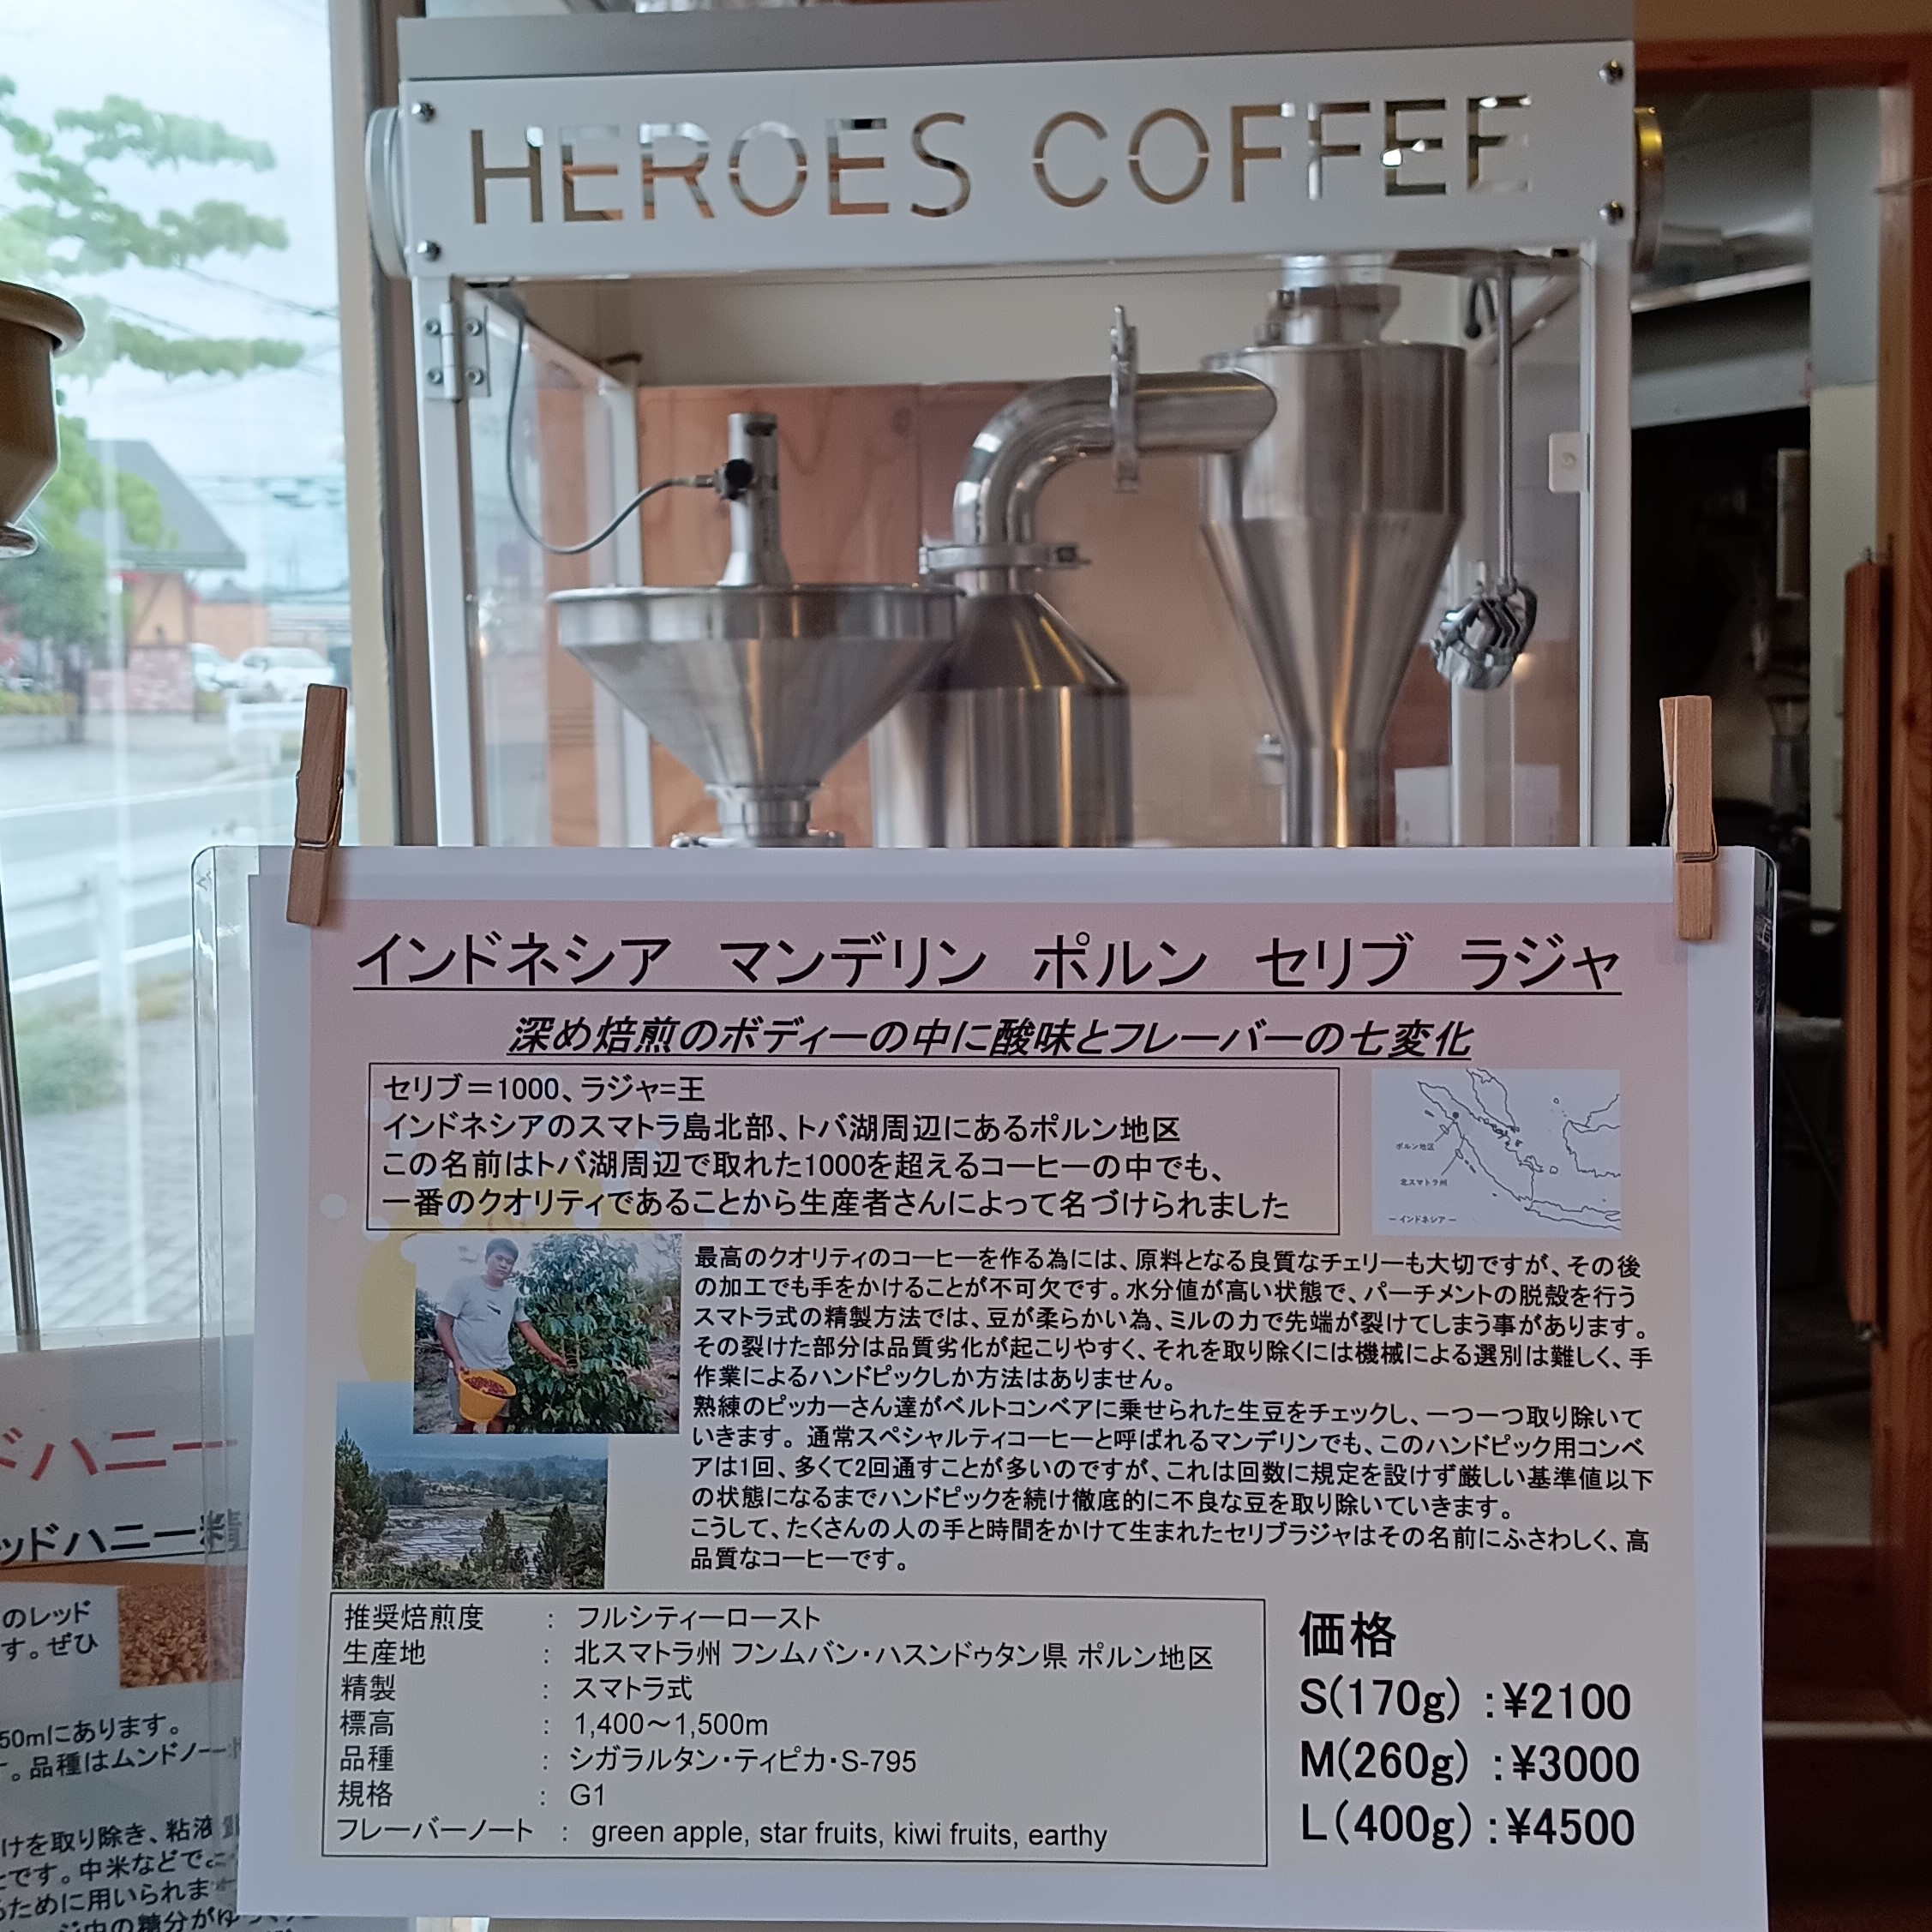 HEROES COFFEE
インドネシア マンデリン ポルン セリブ ラジャ
深め焙煎のボディーの中に酸味とフレーバーの七変化
セリブ=1000、ラジャ=王
インドネシアのスマトラ島北部、トバ湖周辺にあるポルン地区
この名前はトバ湖周辺で取れた1000を超えるコーヒーの中でも、
一番のクオリティであることから生産者さんによって名づけられました
ポルン地区
北スマトラ州
ーインドネシアー
最高のクオリティのコーヒーを作る為には、原料となる良質なチェリーも大切ですが、その後
の加工でも手をかけることが不可欠です。水分値が高い状態で、パーチメントの脱殻を行う
スマトラ式の精製方法では、豆が柔らかい為、ミルの力で先端が裂けてしまう事があります。
その裂けた部分は品質劣化が起こりやすく、それを取り除くには機械による選別は難しく、手
作業によるハンドピックしか方法はありません。
熟練のピッカーさん達がベルトコンベアに乗せられた生豆をチェックし、一つ一つ取り除いて
いきます。通常スペシャルティコーヒーと呼ばれるマンデリンでも、このハンドピック用コンベ
アは1回、多くて2回通すことが多いのですが、これは回数に規定を設けず厳しい基準値以下
の状態になるまでハンドピックを続け徹底的に不良な豆を取り除いていきます。
こうして、たくさんの人の手と時間をかけて生まれたセリブラジャはその名前にふさわしく、高
品質なコーヒーです。
推奨焙煎度 : フルシティーロースト
生産地 : 北スマトラ州 フンムバン・ハスンドゥタン県 ポルン地区
精製 : スマトラ式
標高 : 1,400～1,500m
品種 : シガラルタン・ティピカ・S-795
規格 : G1
フレーバーノート : green apple, star fruits, kiwi fruits, earthy
価格
S(170g) :¥2100
M(260g) :¥3000
L(400g) :¥4500
ドハニー
ッドハニー精
のレッド
す。ぜひ
50mにあります。
。品種はムンドノー
けを取り除き、粘液
です。中米などで
ために用いられま
中の糖分がゆ